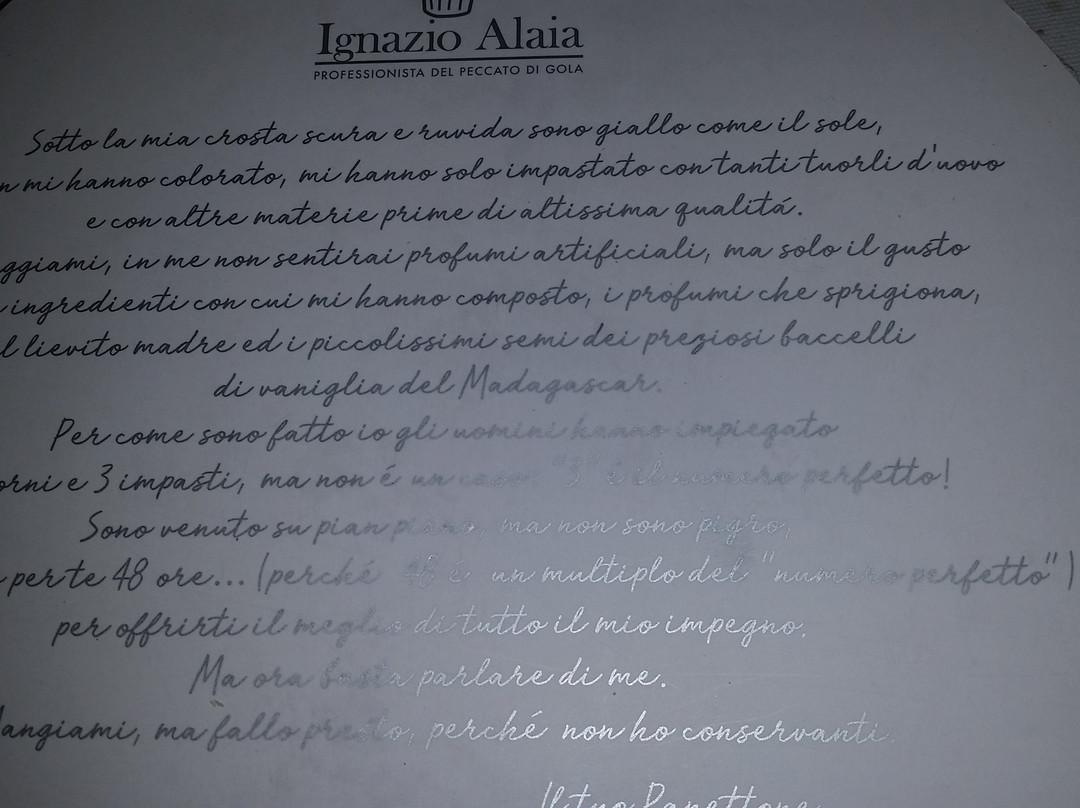 Ignazio Alaia
PROFESSIONISTA DEL PECCATO DI GOLA
Sotto la mia crosta scura e ruvida sono giallo come il sole,
mi hanno colorato, mi hanno solo impastato con tanti tuorli d'uovo
e con altre materie prime di altissima qualitá.
ggiami, in me non sentirai profumi artificiali, ma solo il gusto
ingredienti con cui mi hanno composto, i profumi che sprigiona,
l lievito madre ed i piccolissimi semi dei preziosi baccelli
di vaniglia del Madagascar.
Per come sono fatto io gli uomini hanno impiegato
orni e 3 impasti, ma non é un caso: "3" é il numero perfetto!
Sono venuto su pian piano, ma non sono pigro,
per te 48 ore... (perché 48 é un multiplo del "numero perfetto")
per offrirti il meglio di tutto il mio impegno.
Ma ora basta parlare di me.
angiami, ma fallo presto, perché non ho conservanti.
Il tuo Panettone